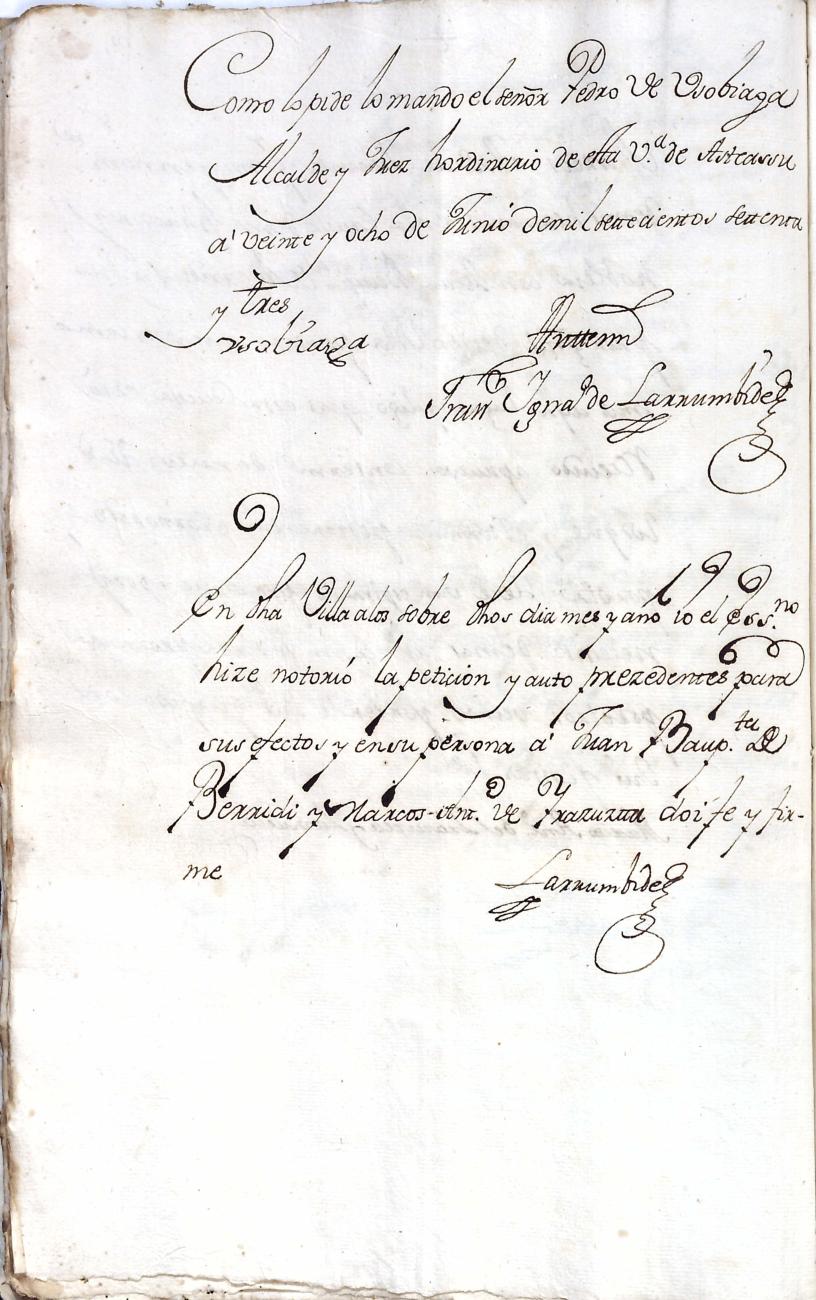 Como lo pide lo mando el señor Pedro de Vsobiaga
Alcalde y Juez hordinario de esta V.ª de Asteassu
a' veinte y ocho de Junio de mil settecientos settenta
y tres
Vsobiaga
Antemi
Fran.co Igna.º de Larrumbide
En dha Villa a los sobre dhos dia mes y año io el Ess.no
hize notorio la peticion y auto prezedentes para
sus efectos y en su persona a' Juan Baup.ta de
Berridi y Marcos Ant.º de Irazuzta doi fe y fir-
me
Larrumbide